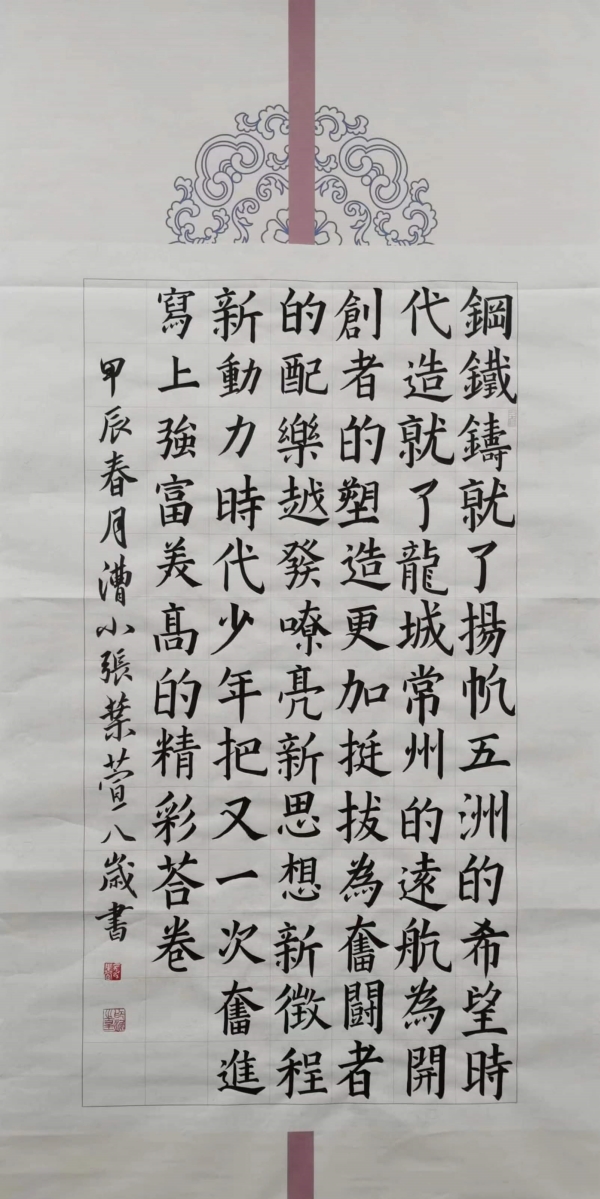 鋼鐵鑄就了揚帆五洲的希望時
代造就了龍城常州的遠航為開
創者的塑造更加挺拔為奮鬪者
的配樂越發嘹亮新思想新徵程
新動力時代少年把又一次奮進
寫上強富美高的精彩荅卷
甲辰春月漕小張葉萱八歲書